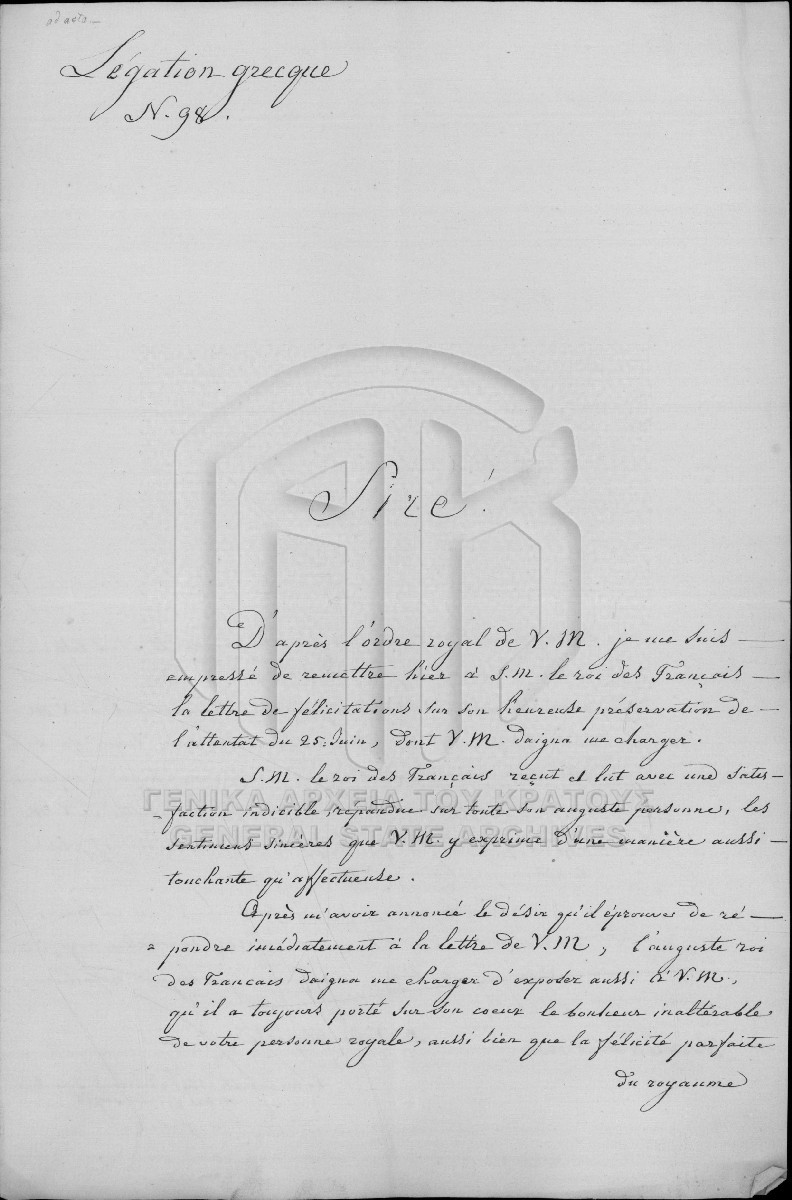 ad acta
Légation grecque
N. 98.
Sire!
D'après l'ordre royal de V. M. je me suis
empressé de remettre hier à S. M. le roi des Français
la lettre de félicitations sur son heureuse préservation de
l'attentat du 25. Juin, dont V. M. daigna me charger.
S. M. le roi des Français reçut et lut avec und satis-
faction indicible, répandue sur toute son auguste personne, les
sentimens sincères que V. M. y exprime d'une manière aussi
touchante qu'affectueuse.
ΓΕΝΙΚΑ ΑΡΧΕΙΑ ΤΟΥ ΚΡΑΤΟΥΣ
GENERAL STATE ARCHIVES
Après m'avoir annoncé le désir qu'il éprouve de ré-
pondre imédiatement à la lettre de V. M, l'auguste roi
des Francais daigna me charger d'exposer aussi à V. M.,
qu'il a toujours porté sur son coeur le bonheur inaltérable
de votre personne royale, aussi bien que la félicité parfaite
du royaume